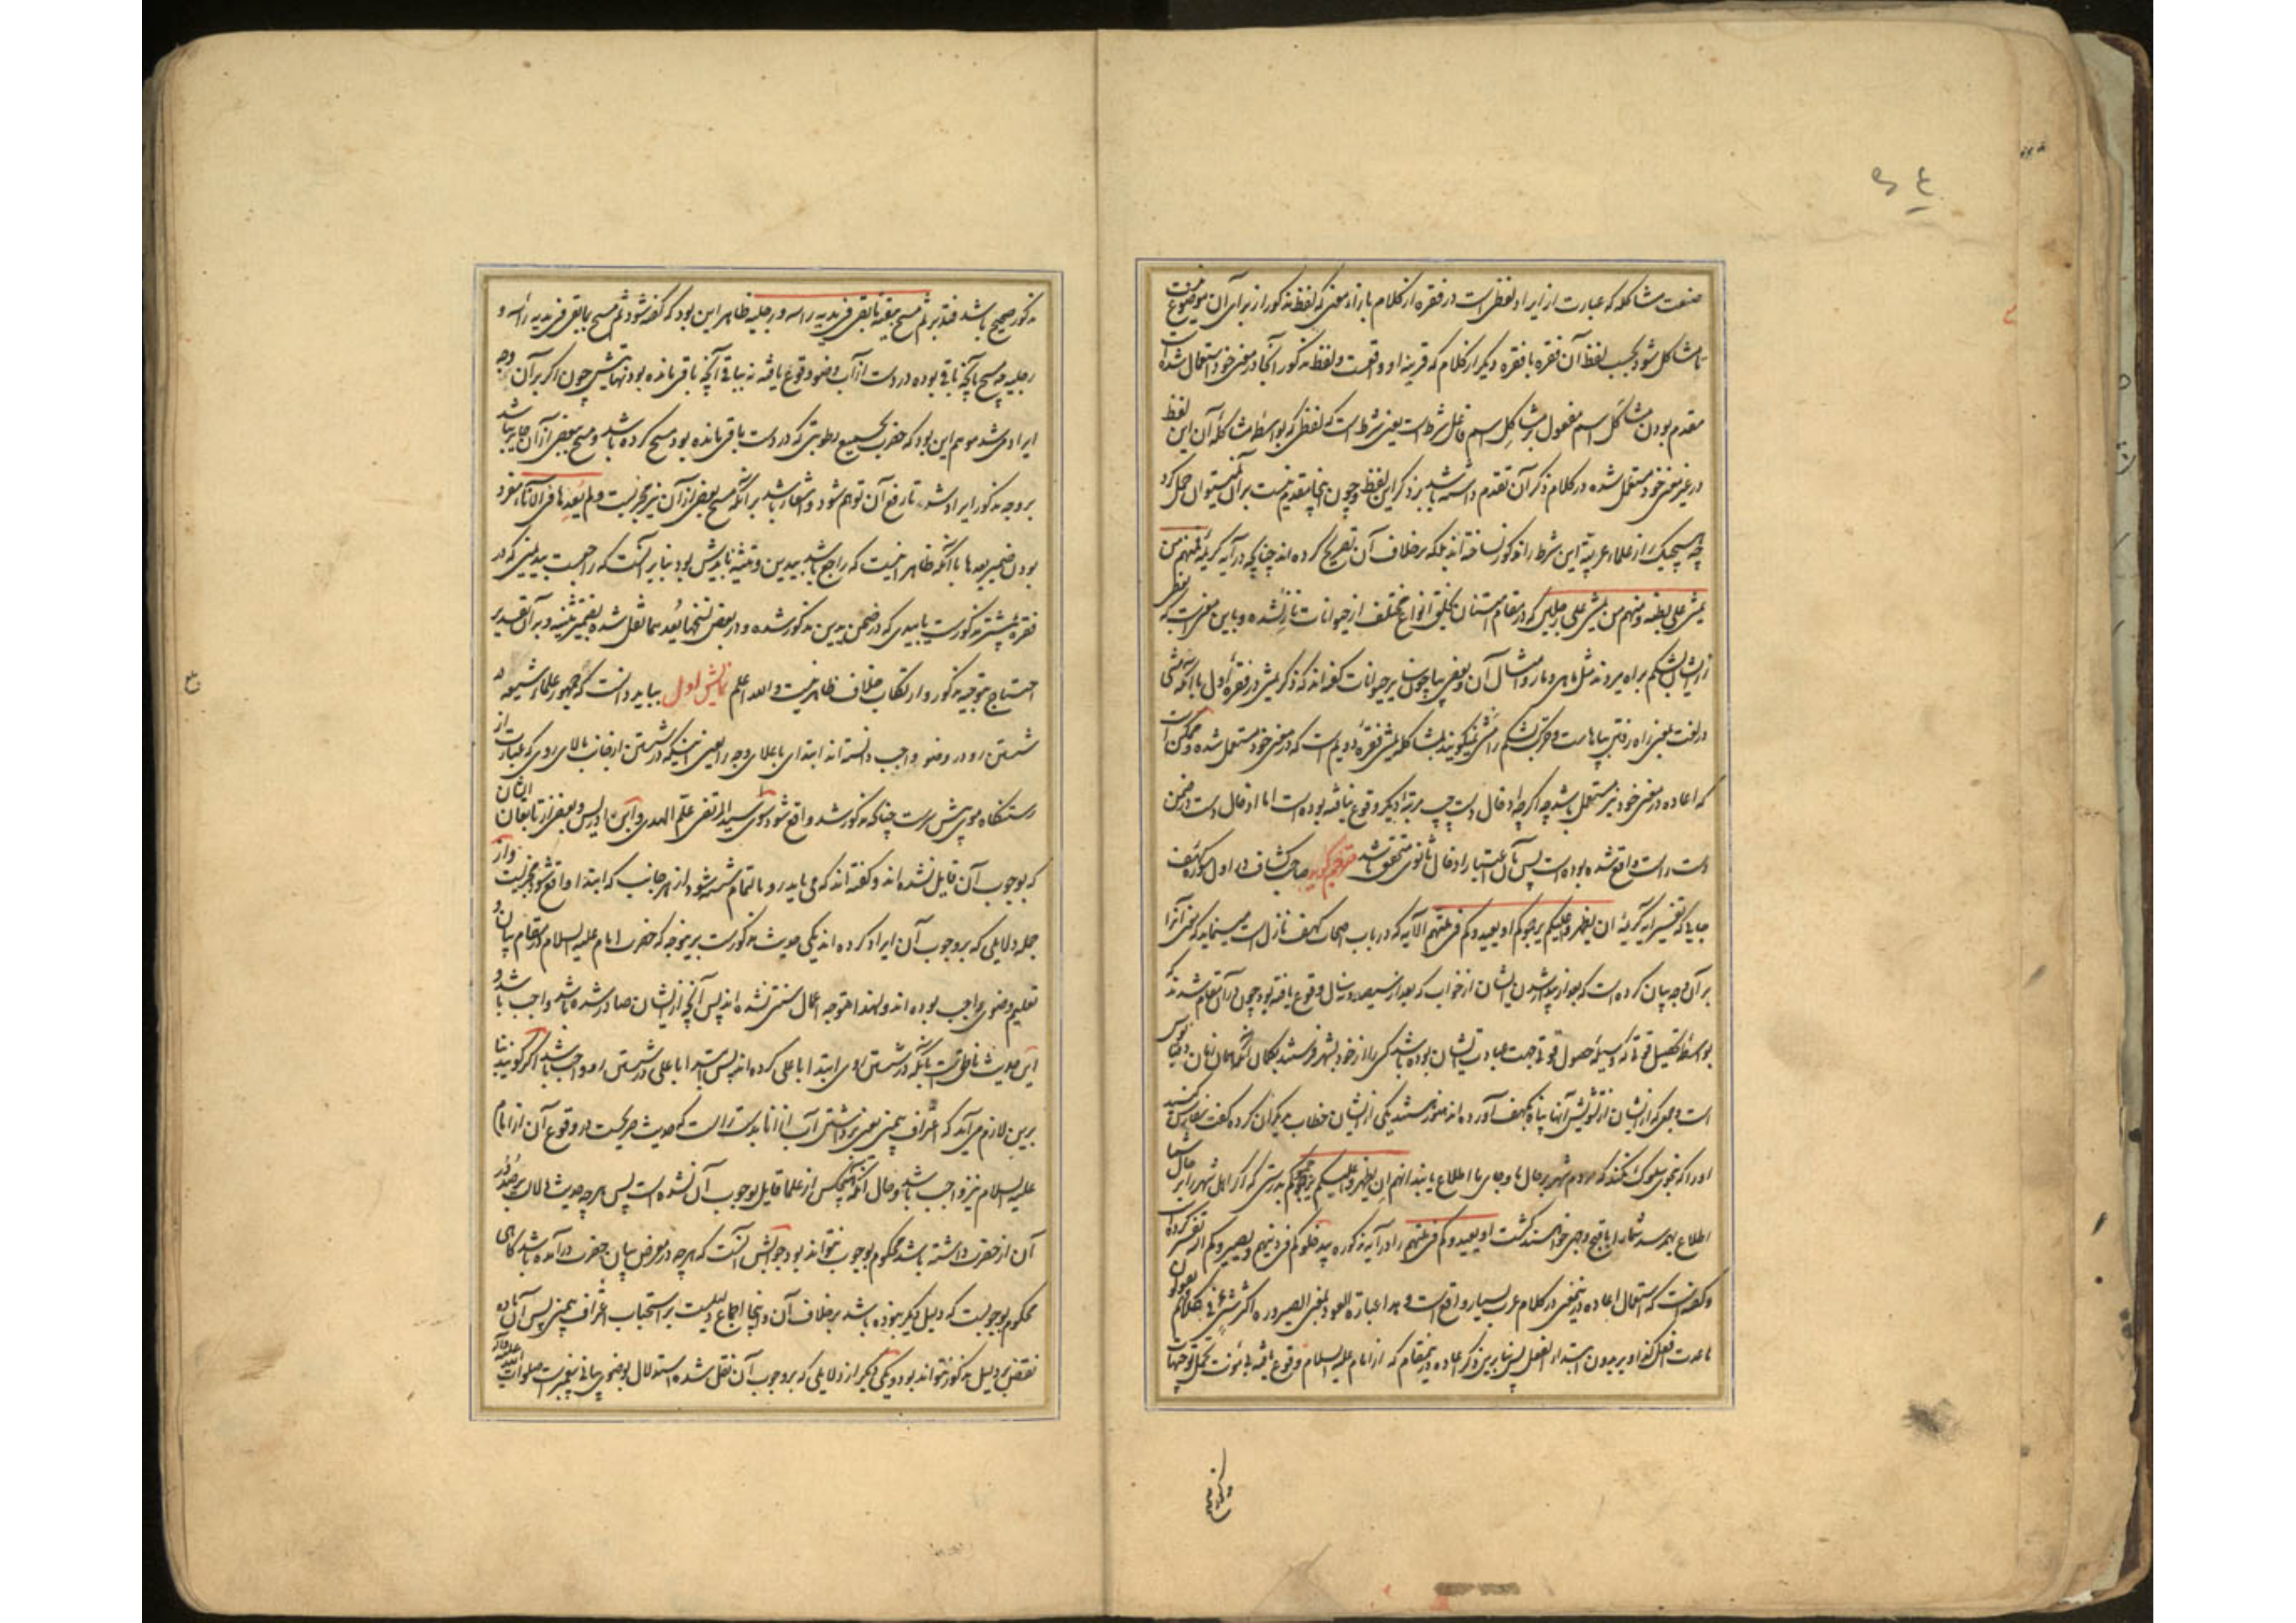 صنعت مشاکله که عبارت از ایراد لفظی است در فقره از کلام بازاء معنی که لفظ مذکور از برای آن موضوع نیست
تا مشاکل شود بحسب لفظ آن فقره با فقره دیگر از کلام که قرینه او واقعست و لفظ مذکور آنجا در معنی خود استعمال شده است
مقدم بودن مشاکل اسم مفعول بر مشاکل اسم فاعل شرط است یعنی شرط است که لفظی که بواسطه مشاکله آن این لفظ
در غیر معنی خود مستعمل شده در کلام ذکر آن تقدم داشته باشد بر ذکر این لفظ و چون اینجا مقدم نیست بر آن نمیتوان حمل کرد
چه هیچیک از علماء عربیه این شرط را مذکور نساخته اند بلکه بر خلاف آن تصریح کرده اند چنانچه در آیه کریمه فمنهم من
یمشی علی بطنه و منهم من یمشی علی رجلین که در مقام امتنان بخلق انواع مختلف از حیوانات نازل شده و باین معنی است که بعضی
از ایشان بشکم براه میروند مثل ماهی و مار و امثال آن و بعضی بپا چون سایر حیوانات گفته اند که ذکر یمشی در فقره اول با آنکه مشی
در لغت بمعنی راه رفتن بپاهاست و حرکت بشکم را مشی نمیگویند بمشاکله یمشی فقره دویم است که در معنی خود مستعمل شده و ممکن است
که اعاده در معنی خود نیز مستعمل باشد چه اگرچه ادخال دست چپ مرتبه دیگر وقوع نیافته بوده است اما ادخال دست در ضمن
دست راست واقع شده بوده است پس بآن اعتبار ادخال ثانوی متحقق باشد مترجم گوید صاحب کشاف در اول سوره کهف
جایی که تفسیر آیه کریمه ان یظهروا علیکم یرجموکم او یعیدوکم فی ملتهم الآیه که در باب اصحاب کهف نازل است مینماید که معنی آنرا
بر آن وجه بیان کرده است که بعد از بیدار شدن ایشان از خواب که بعد از سیصد و نه سال وقوع یافته بود چون در آن مقام شدند که
بواسطه تحصیل قوتی که وسیله حصول قوتی جهت عبادت ایشان بوده باشد کسی را از خود بشهر فرستند بگمان آنکه همان زمان دقیانوس
است و جمعی که از ایشان از تشویش آنها پناه بکهف آورده اند هنوز هستند یکی از ایشان خطاب بدیگران کرده گفت سفارش کنید
او را که بنحوی سلوک کند که مردم شهر بر حال ما و جای ما اطلاع نیابند انهم ان یظهروا علیکم یرجموکم بدرستی که اگر اهل شهر را بر حال شما
اطلاع بهم رسد شما را باقبح وجهی خواهند کشت او یعیدوکم فی ملتهم را در آیه مذکوره بیدخلوکم فی دینهم و یصیروکم الیه تفسیر کرده است
و گفته است که استعمال اعاده در این معنی در کلام عرب بسیار واقع است و بهذا عبارته العود بمعنی الصیروره اکثر شئ فی کلامهم یقولون
ما عدت افعل کذا و یریدون ابتداء الفعل پس بنابرین ذکر اعاده در مقام که از امام علیه السلام وقوع یافته بی مؤنت تحمل توجیهات
و کوزه صحیح
مذکور صحیح باشد فتدبر ثم مسح ببقیة ما بقی فی یدیه راسه و رجلیه ظاهر این بود که گفته شود ثم مسح بما بقی فی یدیه راسه و
رجلیه چه مسح بآنچه باقی بوده در دست از آب وضو وقوع یافته نه ببقای آنچه باقی مانده بود نهایتش چون اگر بر آن وجه
ایراد میشد موهم این بود که حضرت بجمیع رطوبتی که در دست باقی مانده بود مسح کرده باشد و مسح ببعضی از آن جایز نباشد
بر وجه مذکور ایراد شد تا رفع آن توهم شود و اشعار باشد بر آنکه مسح ببعضی از آن نیز مجزیست و لم یعدها فی الاناء مفرد
بودن ضمیر یعدها با آنکه ظاهر اینست که راجع باشد بیدین و تثنیه بایدش بود بنابر آنست که راجعست بیدیمنی که در
فقره پیشتر مذکورست یا بیدی که در ضمن یدین مذکور شده و در بعضی نسخها یعدهما نقل شده بضمیر تثنیه و بر آن تقدیر
احتیاج بتوجیه مذکور و ارتکاب خلاف ظاهر نیست والله اعلم نمایش اول بباید دانست که جمهور علماء شیعه در
شستن رو در وضو واجب دانسته اند ابتدای باعلای وجه را یعنی اینکه در شستن از جانب بالای روی که عبارت از
رستنگاه موی پیش سرست چنانکه مذکور شد واقع شود سوی سید المرتضی علم الهدی و ابن ادریس و بعضی از تابعان ایشان
که بوجوب آن قایل نشده اند و گفته اند که می باید رو بالتمام شسته شود از هر جانب که ابتدا واقع شود مجزیست و از
جمله دلایلی که بر وجوب آن ایراد کرده اند یکی حدیث مذکورست برینوجه که حضرت امام علیه السلام در مقام بیان و
تعلیم وضوی واجب بوده اند و لهذا متوجه اعمال سنتی نشده اند پس آنچه از ایشان صادر شده باشد واجب باشد و
این حدیث ناطق است بآنکه در شستن روی ابتدا باعلی کرده اند پس ابتدا باعلی در شستن رو واجب باشد اگر گویند بنا
برین لازم می آید که اغتراف بیمنی یعنی برداشتن آب از انا بدست راست که حدیث صریحست در وقوع آن از امام
علیه السلام نیز واجب باشد و حال آنکه هیچکس از علما قایل بوجوب آن نشده است پس هر چه حدیث دلالت بر صدور
آن از حضرت داشته باشد محکوم بوجوب نتواند بود جوابش آنست که هر چه در معرض بیان حضرت درآمده باشد گاهی
محکوم بوجوبست که دلیل دیگر نبوده باشد بر خلاف آن و اینجا اجماع دلیلست بر استحباب اغتراف بیمنی پس آن ماده
نقض بر دلیل مذکور نتواند بود و یکی دیگر از دلایلی که بر وجوب آن نقل شده استدلال بوضوی بیانی پیغمبرست صلوات الله علیه و آله